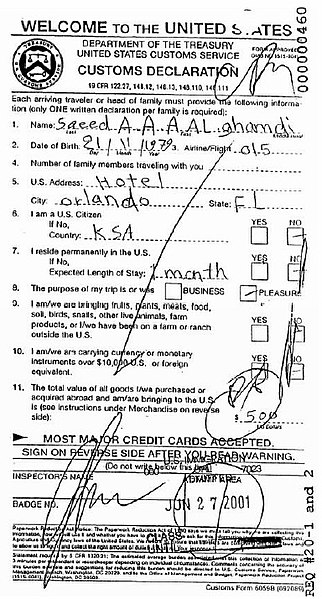 WELCOME TO THE UNITED STATES
DEPARTMENT OF THE TREASURY
UNITED STATES CUSTOMS SERVICE
FORM APPROVED
CUSTOMS DECLARATION
19 CFR 122.27, 148.12, 148.13, 148.110, 148.111
000000460
Each arriving traveler or head of family must provide the following informa-
tion (only ONE written declaration per family is required):
1. Name: Saeed A A A AL ghamdi
2. Date of Birth: 21/11/1979 3. Airline/Flight 015
Day Month Year
4. Number of family members traveling with you
5. U.S. Address: Hotel
City: orlando State: FL
6. I am a U.S. Citizen YES NO
If No,
Country: KSA
7. I reside permanently in the U.S. YES NO
If No,
Expected Length of Stay: 1 month
8. The purpose of my trip is or was BUSINESS PLEASURE
9. I am/we are bringing fruits, plants, meats, food, YES NO
soil, birds, snails, other live animals, farm
products, or I/we have been on a farm or ranch
outside the U.S.
10. I am/we are carrying currency or monetary YES NO
instruments over $10,000 U.S. or foreign
equivalent.
11. The total value of all goods I/we purchased or
acquired abroad and am/are bringing to the
U.S. is (see instructions under Merchandise on reverse
side): $ 500
US Dollars
MOST MAJOR CREDIT CARDS ACCEPTED.
SIGN ON REVERSE SIDE AFTER YOU READ WARNING.
(Do not write below this line)
U.S. IMMIGRATION
INSPECTOR'S NAME STAMP AREA
BADGE NO. JUN 27 2001
CLASS
UNTIL
Paperwork Reduction Act Notice: The Paperwork Reduction Act of 1980 says we must tell you why we are collecting this
Customs Form 6059B (092089)
REQ #20-1 and 2